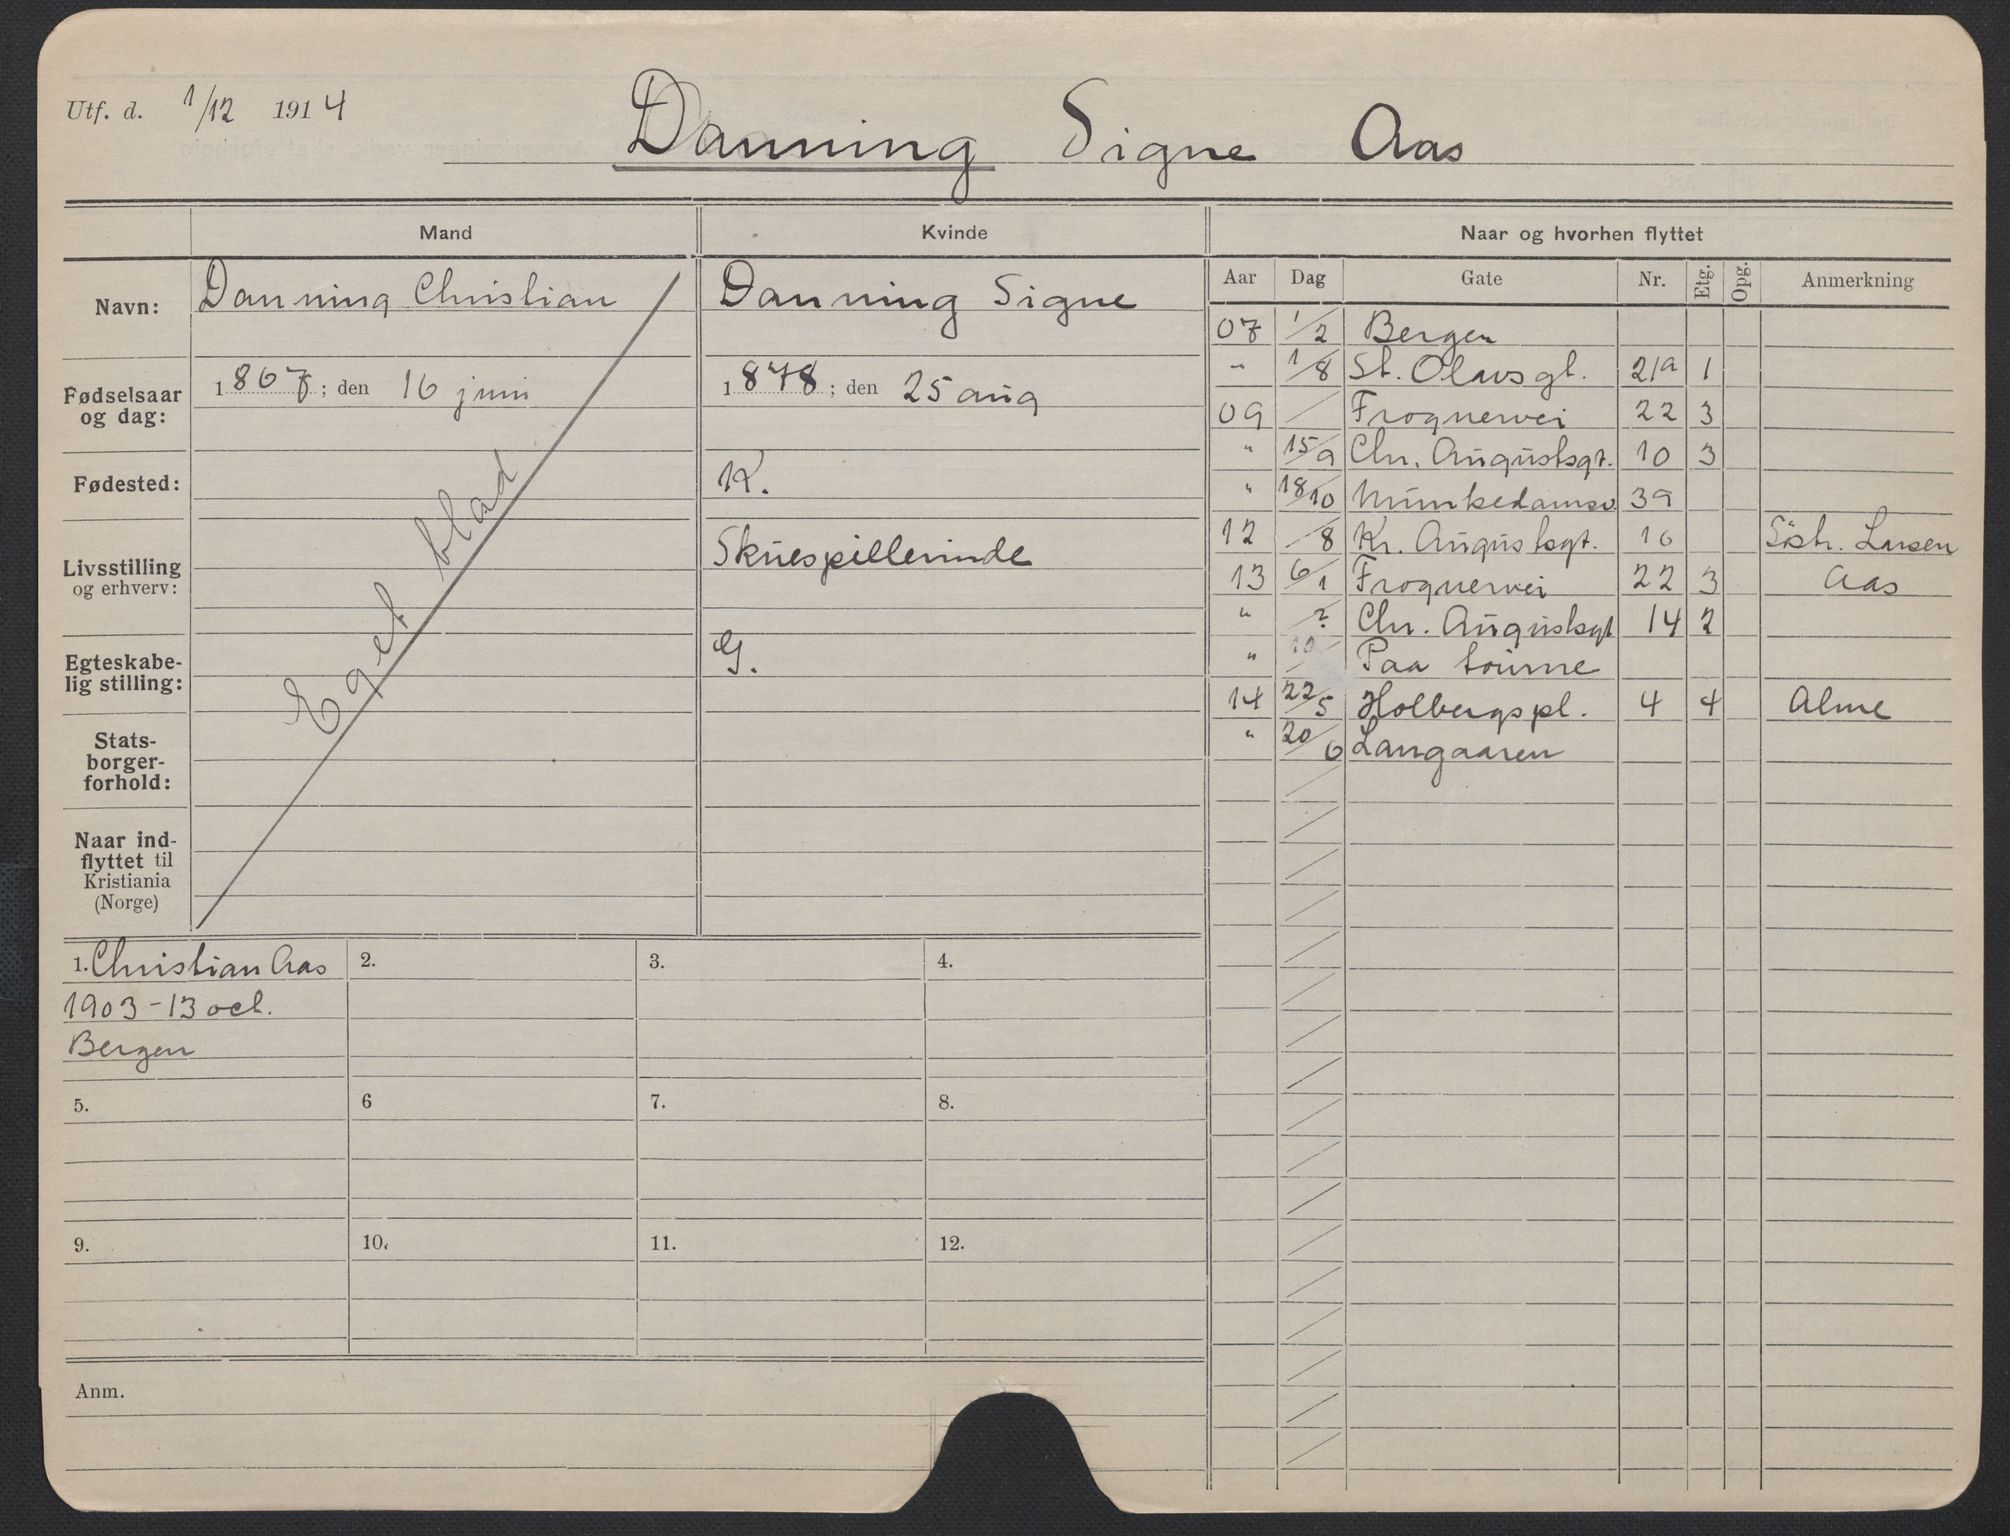 Utf. d. 1/12 1914 Danning Signe Aas
Mand Kvinde Naar og hvorhen flyttet
Navn: Danning Christian Danning Signe
Fødselsaar og dag: 1867; den 16 juni 1878; den 25 aug
Fødested: K.
Livsstilling og erhverv: Skuespillerinde
Egteskabe-
lig stilling: G.
Stats-
borger-
forhold:
Naar ind-
flyttet til
Kristiania
(Norge)
Eget blad
1. Christian Aas 2. 3. 4.
1903 - 13 oct.
Bergen
5. 6 7. 8.
9. 10. 11. 12.
Anm.
Aar Dag Gate Nr. Etg. Opg. Anmerkning
07 1/2 Bergen
" 1/8 St. Olavsgt. 21a 1
09 / Frognervei 22 3
" 15/9 Chr. Augustsgt. 10 3
" 18/10 Munkedamsv. 39
12 /8 Kr. Augustsgt. 16 Søstr. Larsen
13 6/1 Frognervei 22 3 Aas
" /? Chr. Augustsgt 14 2
" 10/ Paa tourne
14 22/5 Holbergs pl. 4 4 Alme
" 20/6 Langaaren